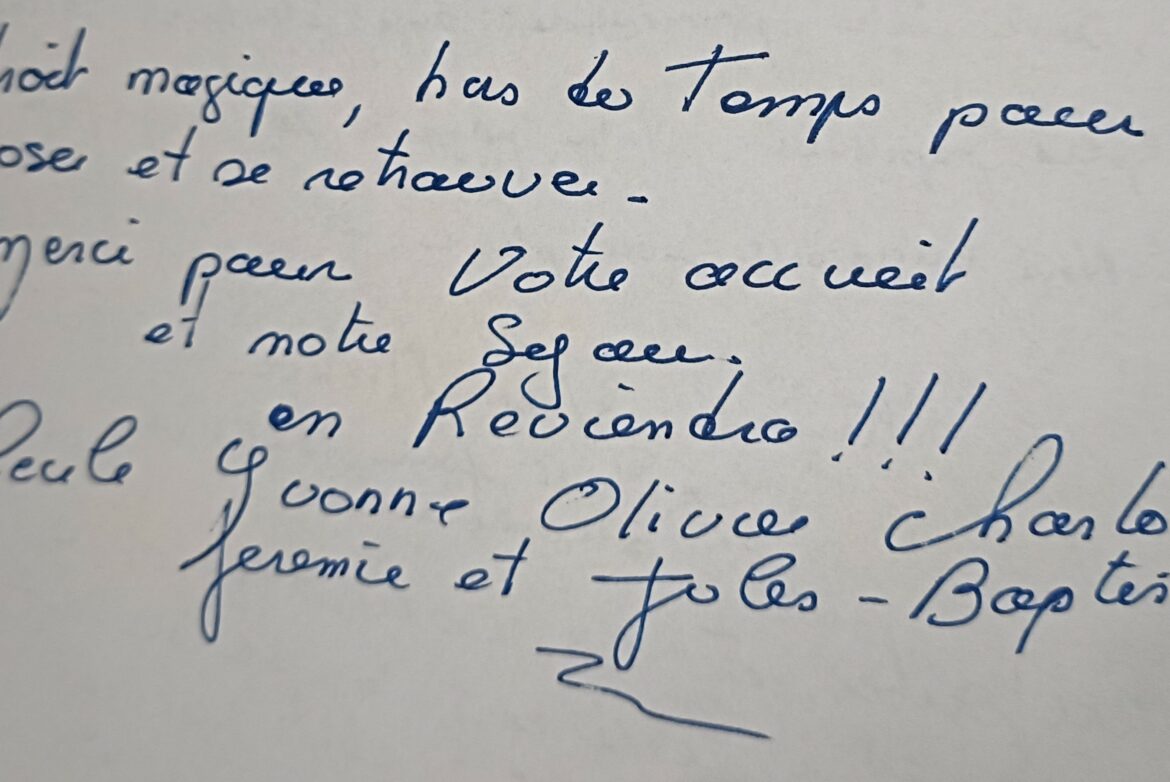 magique, hors de Temps pour
oser et se retrouver.
merci pour Votre accueil
et notre Sejour.
en Reviendra !!!
Yvonne Olivier Charlo
Jeremie et Jules - Baptis